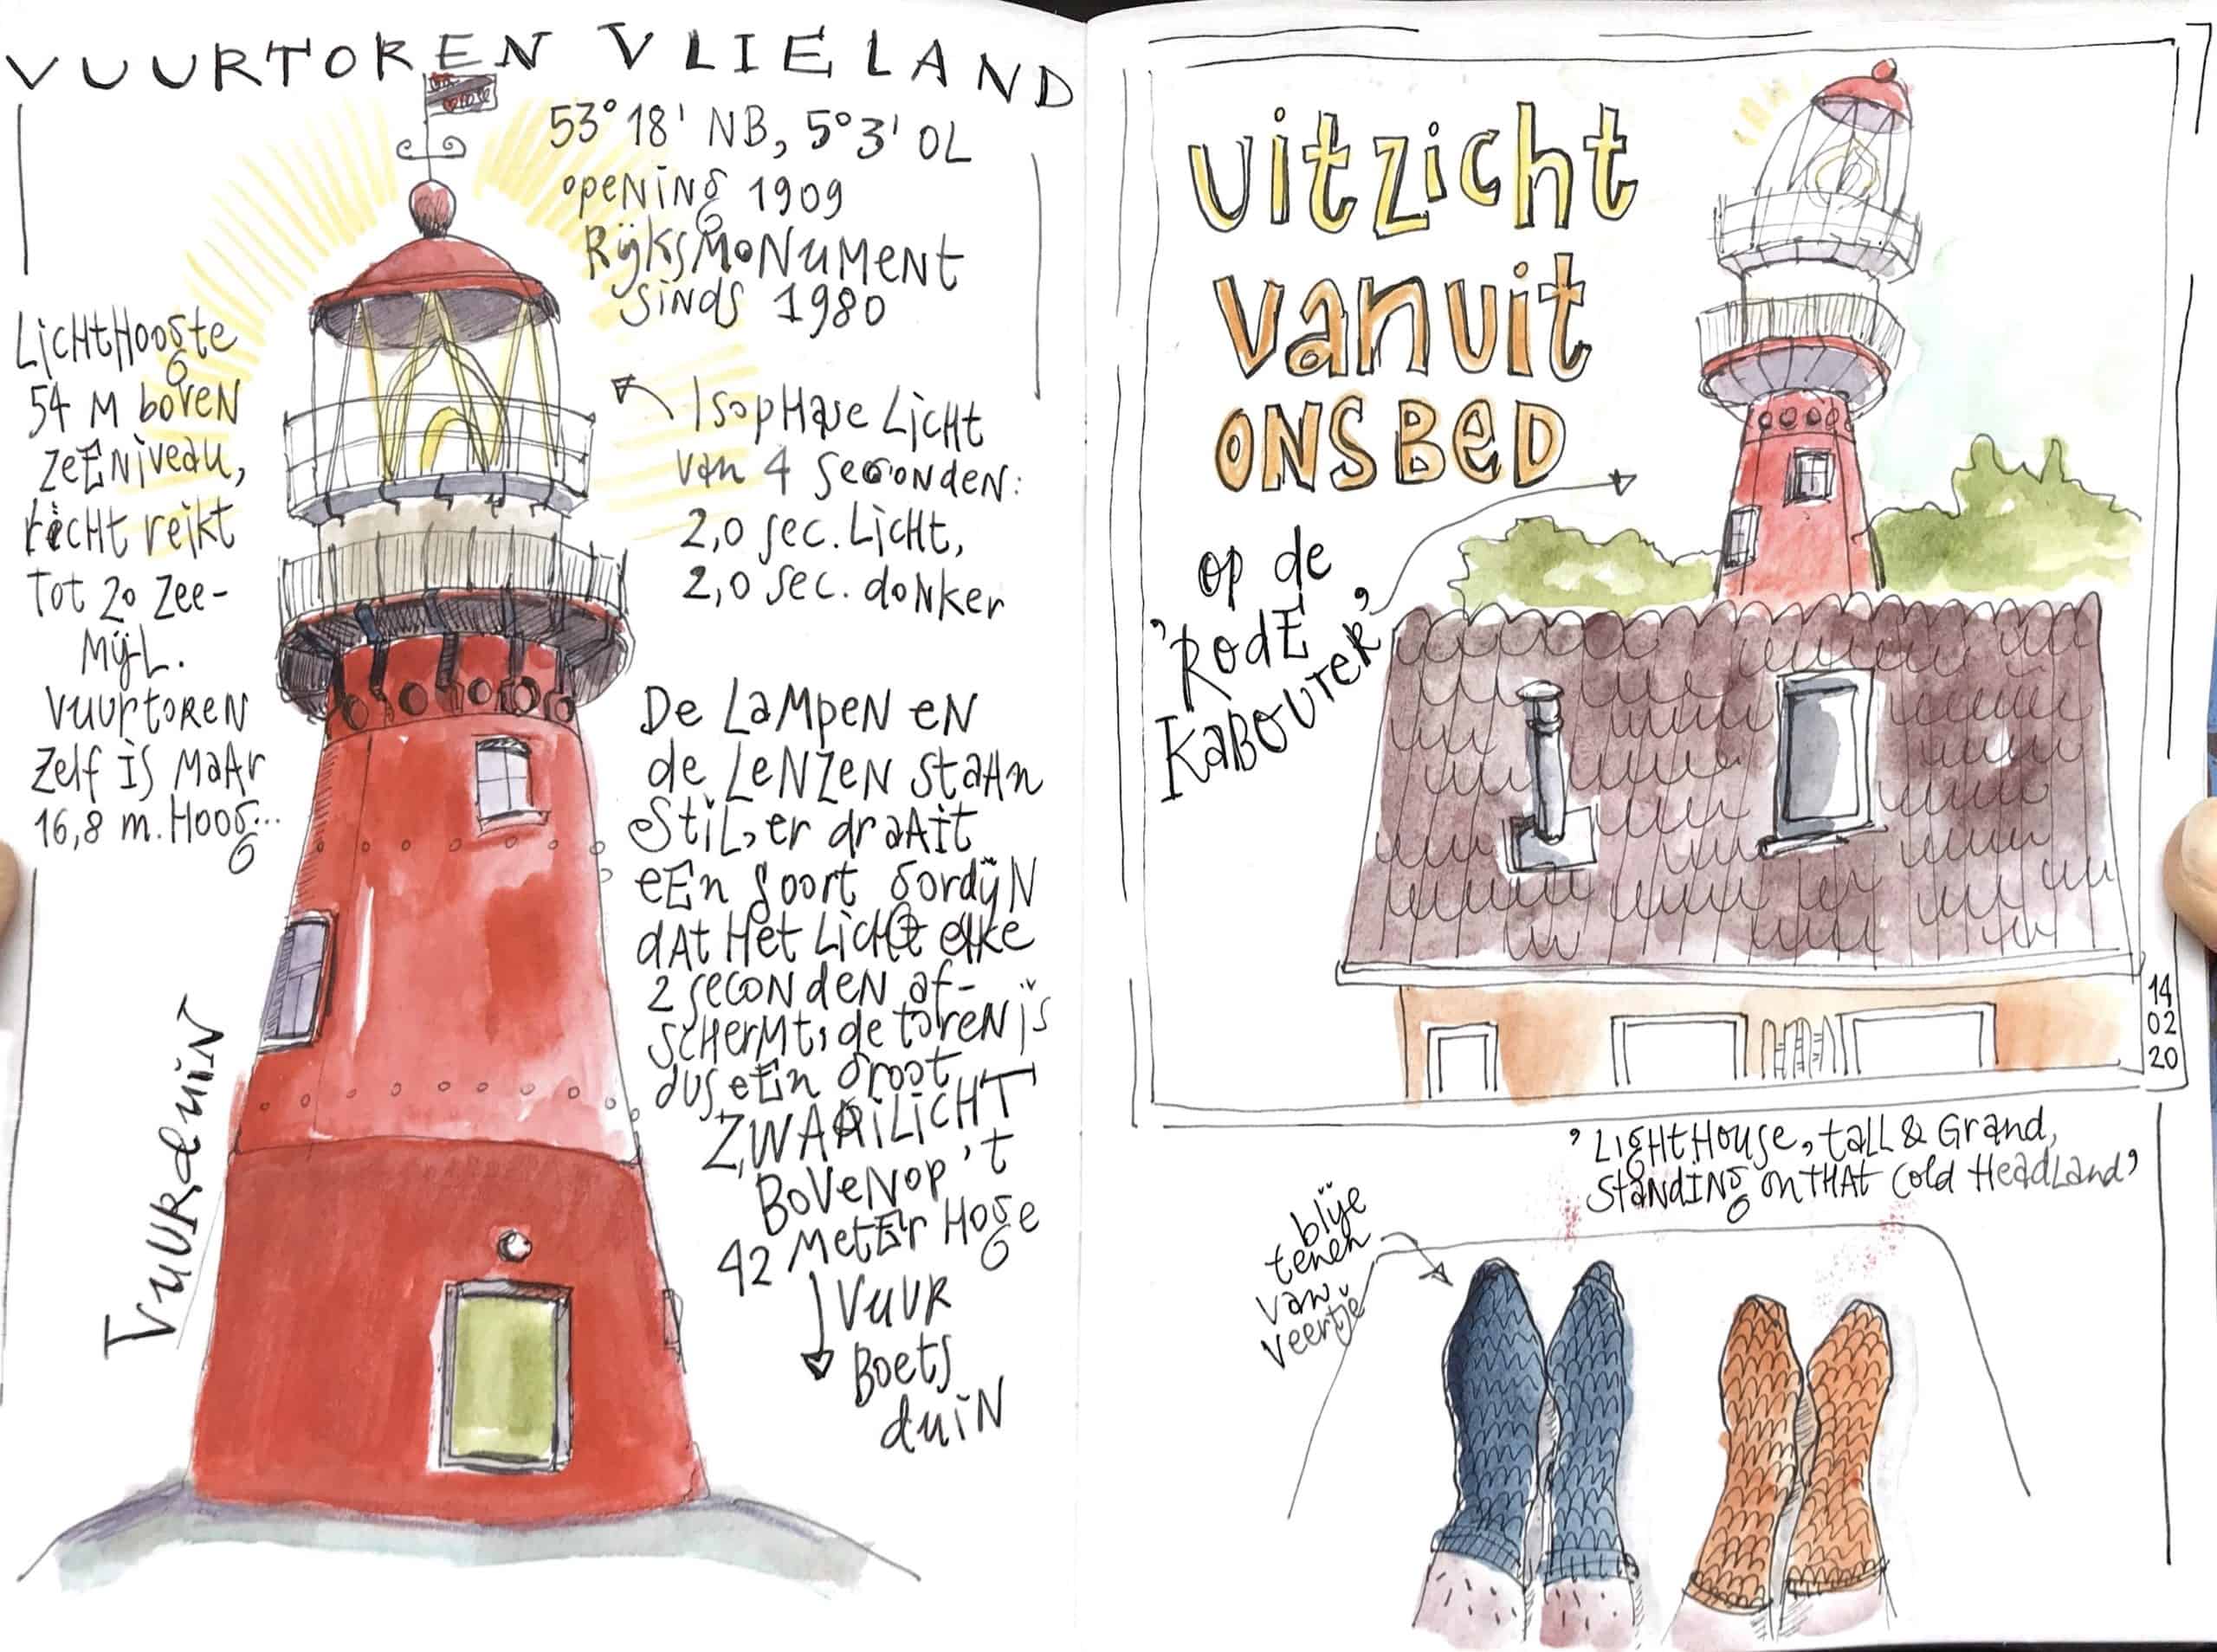 VUURTOREN VLIELAND
53°18' NB, 5°3' OL
opening 1909
Rijksmonument
sinds 1980
Lichthoogte
54 m boven
zeeniveau,
licht reikt
tot 20 zee-
mijl.
Vuurtoren
zelf is maar
16,8 m. Hoog...
Isophase Licht
van 4 seconden:
2,0 sec. Licht,
2,0 sec. donker
De Lampen en
de Lenzen staan
stil, er draait
een soort gordijn
dat Het Licht elke
2 seconden af-
schermt, de toren is
dus een groot
ZWAAILICHT
Bovenop 't
42 meter Hoge
Vuur
Boets
duin
Vuurduin
uitzicht
vanuit
ONS BED
op de
'Rode
Kabouter'
14
02
20
'Lighthouse, tall & Grand,
standing on that cold Headland'
blije
tenen
van
veertje